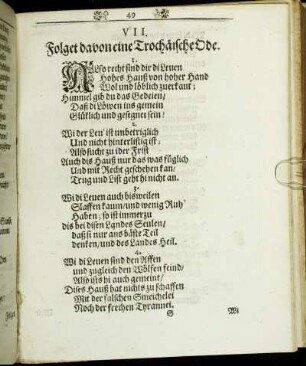 49
VII.
Folget davon eine Trochäische Ode.
1.
ALso recht sind dir di Leuen
Hohes Hauß von hoher Hand
Wol und löblich zuerkant;
Himmel gib du das Gedeien/
Daß di Löwen ins gemein
Glüklich und gesegnet sein!
2.
Wi der Leu' ist unbetriglich
Und nicht hinterlistig ist;
Also sucht zu ider Frist
Auch dis Hauß nur das was füglich
Und mit Recht geschehen kan/
Trug und List geht hi nicht an.
3.
Wi di Leuen auch bisweilen
Slaffen kaum/und wenig Ruh'
Haben; so ist immerzu
dis bei disen Landes Seulen/
daß si nur ans bäste Teil
denken/und des Landes Heil.
4.
Wi di Leuen sind den Affen
und zugleich den Wölfen feind/
Also ists di auch gemeint/
Dises Hauß hat nichts zu schaffen
Mit der falschen Smeichelei
Noch der frechen Tyrannei.
G Wi